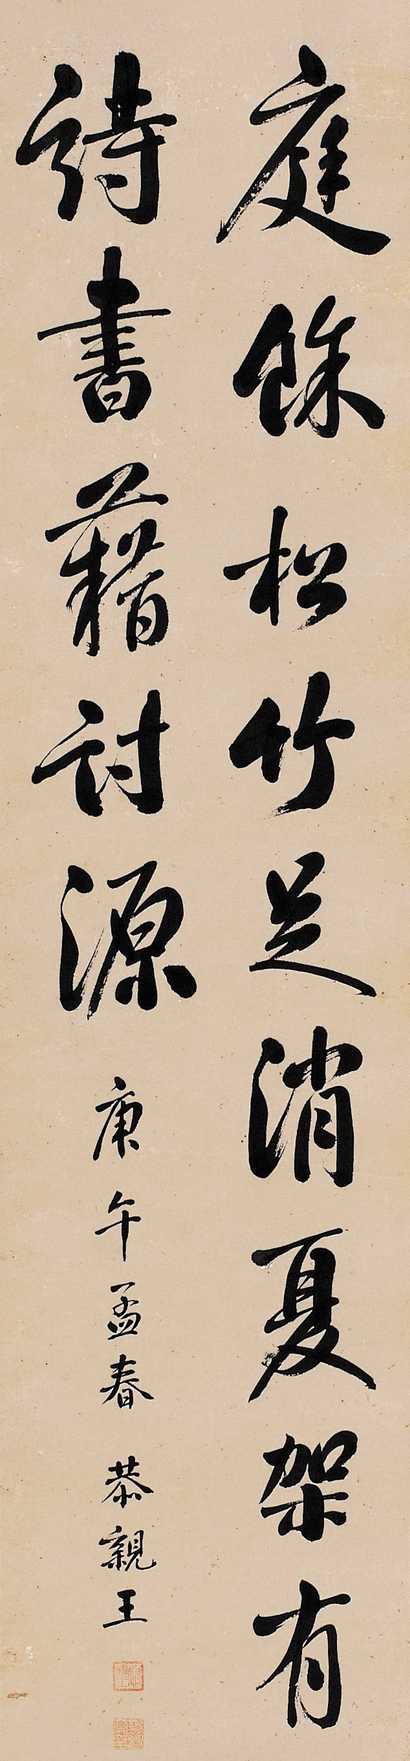 庭餘松竹足消夏架有
詩書藉討源
庚午孟春 恭親王